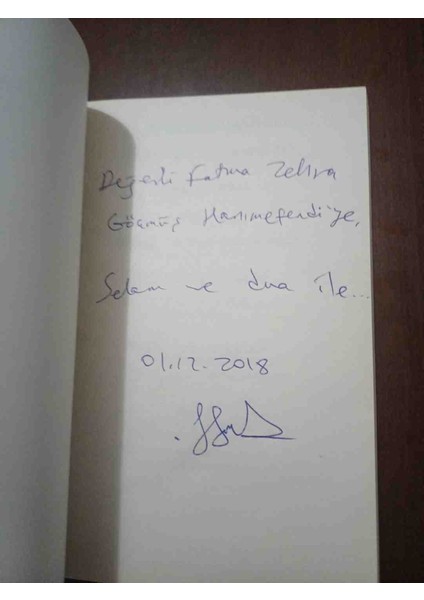 Değerli Fatma Zehra
Göçmüş Hanımefendi'ye,
Selam ve dua ile...
01.12.2018